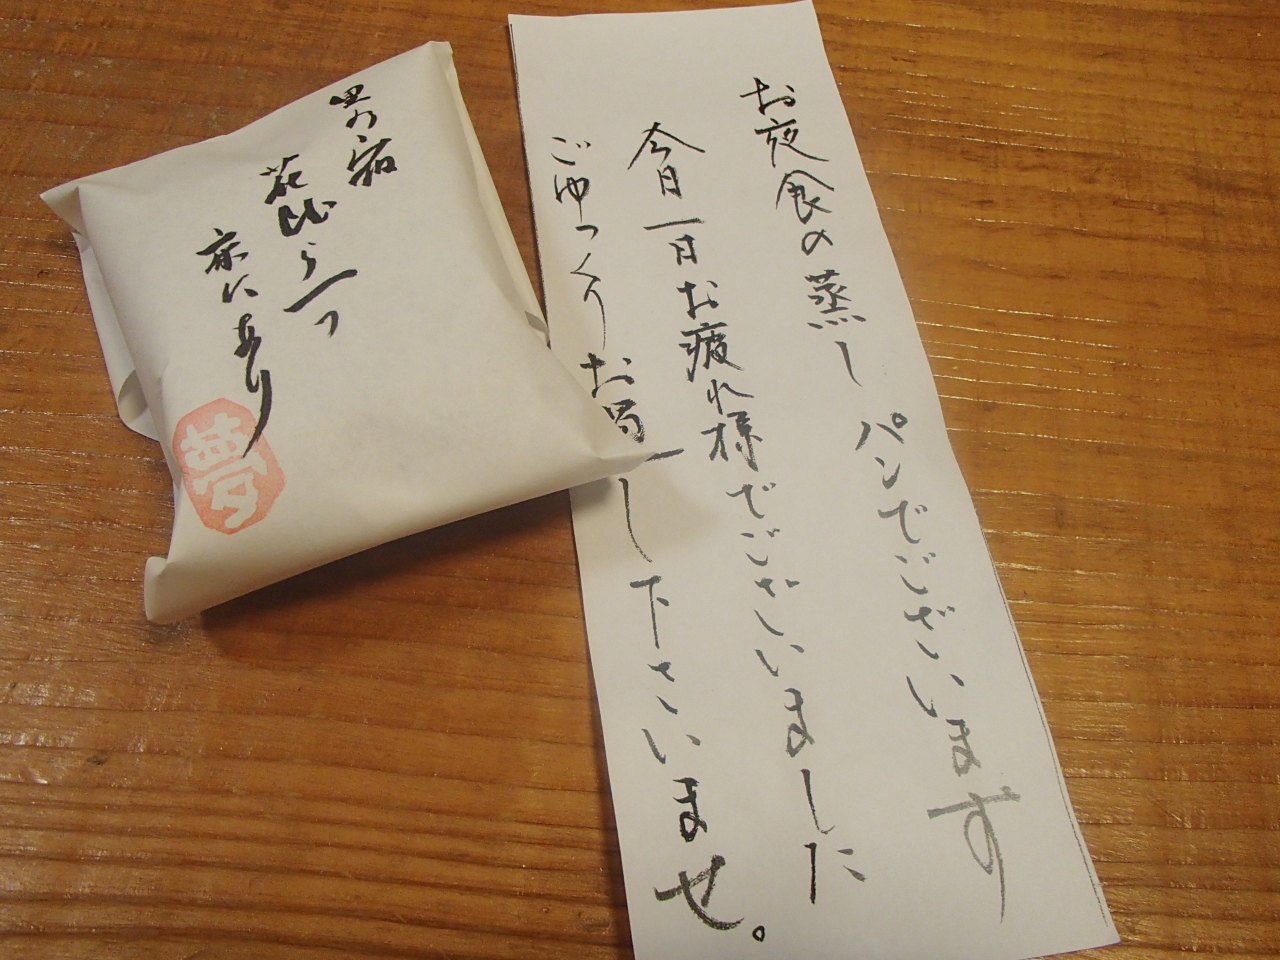 里の宿
花びら一つ
床にあり
夢
お夜食の蒸しパンでございます
今日一日お疲れ様でございました
ごゆっくりお召し下さいませ。